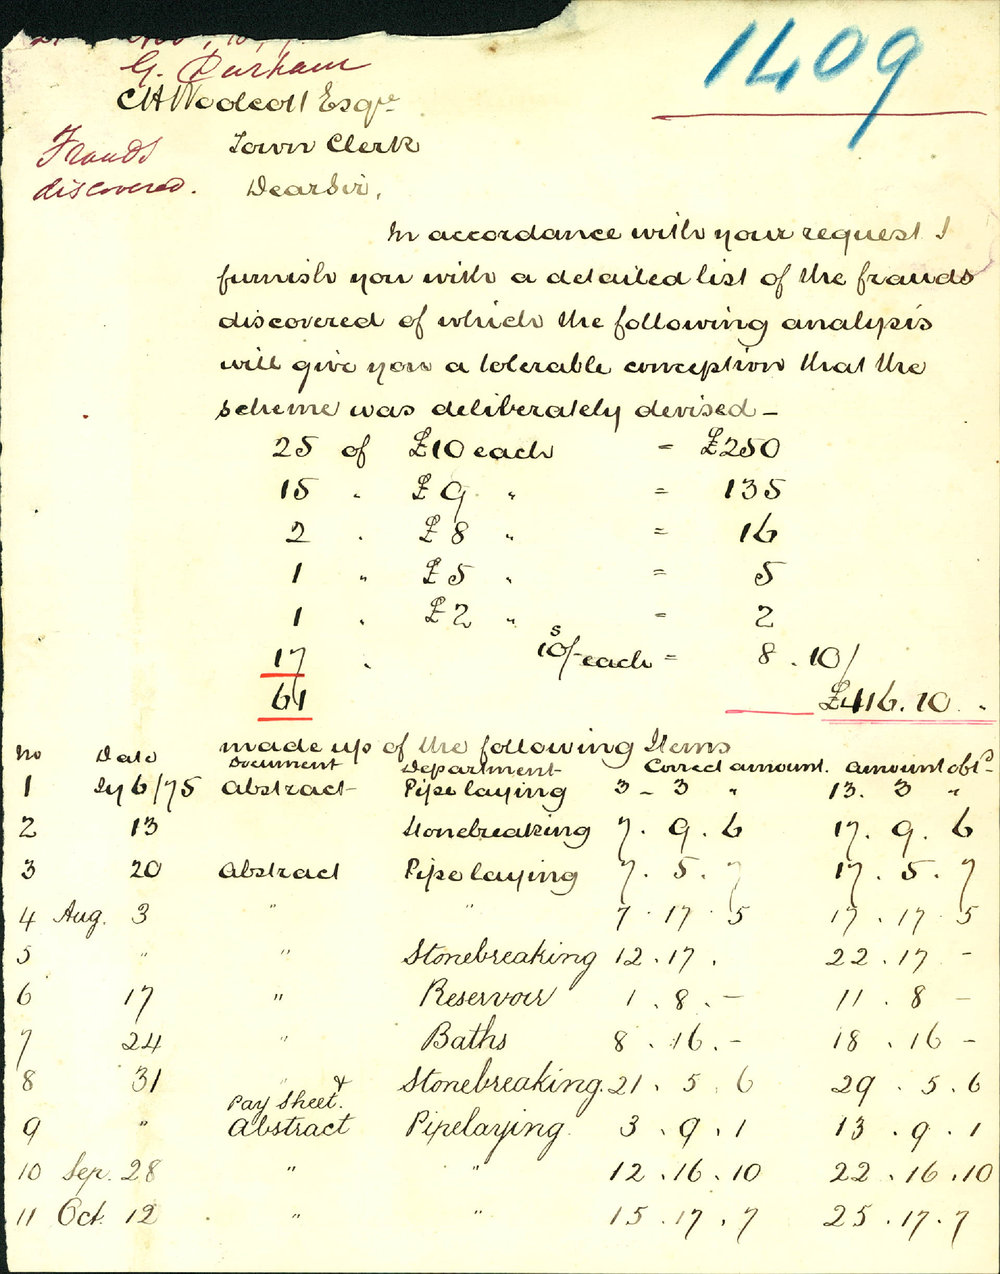 1409
G. Durham
CHWoolcott Esqre
Town Clerk
Frauds
discovered.
Dear Sir,
In accordance with your request I
furnish you with a detailed list of the frauds
discovered of which the following analysis
will give you a tolerable conception that the
scheme was deliberately devised –
25 of £10 each = £250
15 " £9 " = 135
2 " £8 " = 16
1 " £5 " = 5
1 " £2 " = 2
17 " 10s/ each = 8 . 10/
61 £416.10 . .
made up of the following Items
No Date Document Department Correct amount. amount obtd
1 Jy 6/75 Abstract Pipe laying 3 – 3 " 13. 3 "
2 13 Stonebreaking 7. 9. 6 17. 9. 6
3 20 Abstract Pipe laying 7. 5. 7 17. 5. 7
4 Aug. 3 " " 7. 17. 5 17. 17. 5
5 " " Stonebreaking 12. 17. 22. 17 –
6 17 " Reservoir 1. 8. – 11. 8 –
7 24 " Baths 8. 16. – 18. 16 –
8 31 " & Stonebreaking. 21. 5. 6 29. 5. 6
Pay Sheet.
9 " Abstract Pipelaying. 3. 9. 1 13. 9. 1
10 Sep. 28 " " 12. 16. 10 22. 16. 10
11 Oct. 12 " " 15. 17. 7 25. 17. 7